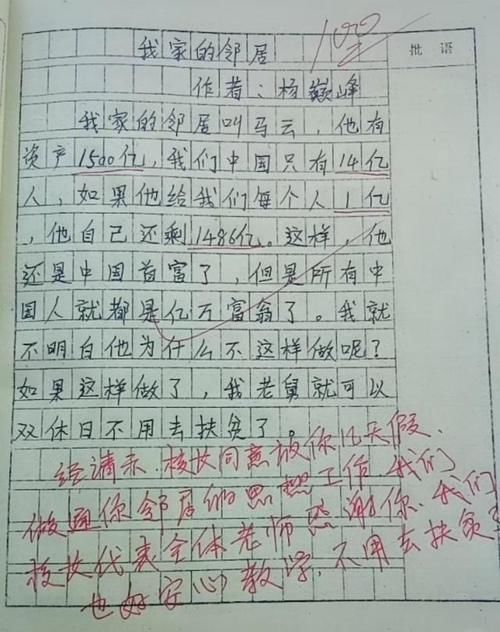 100
批语
我家的邻居
作者:杨巅峰
我家的邻居叫马云,他有
资产1500亿,我们中国只有14亿
人,如果他给我们每个人1亿
,他自己还剩1486亿。这样,他
还是中国首富了,但是所有中
国人就都是亿万富翁了。我就
不明白他为什么不这样做呢?
如果这样做了,我老舅就可以
双休日不用去扶贫了。
经请示.校长同意放你几天假、
做通你邻居的思想工作,我们
校长代表全体老师感谢你、我们
也好安心教学,不用去扶贫了